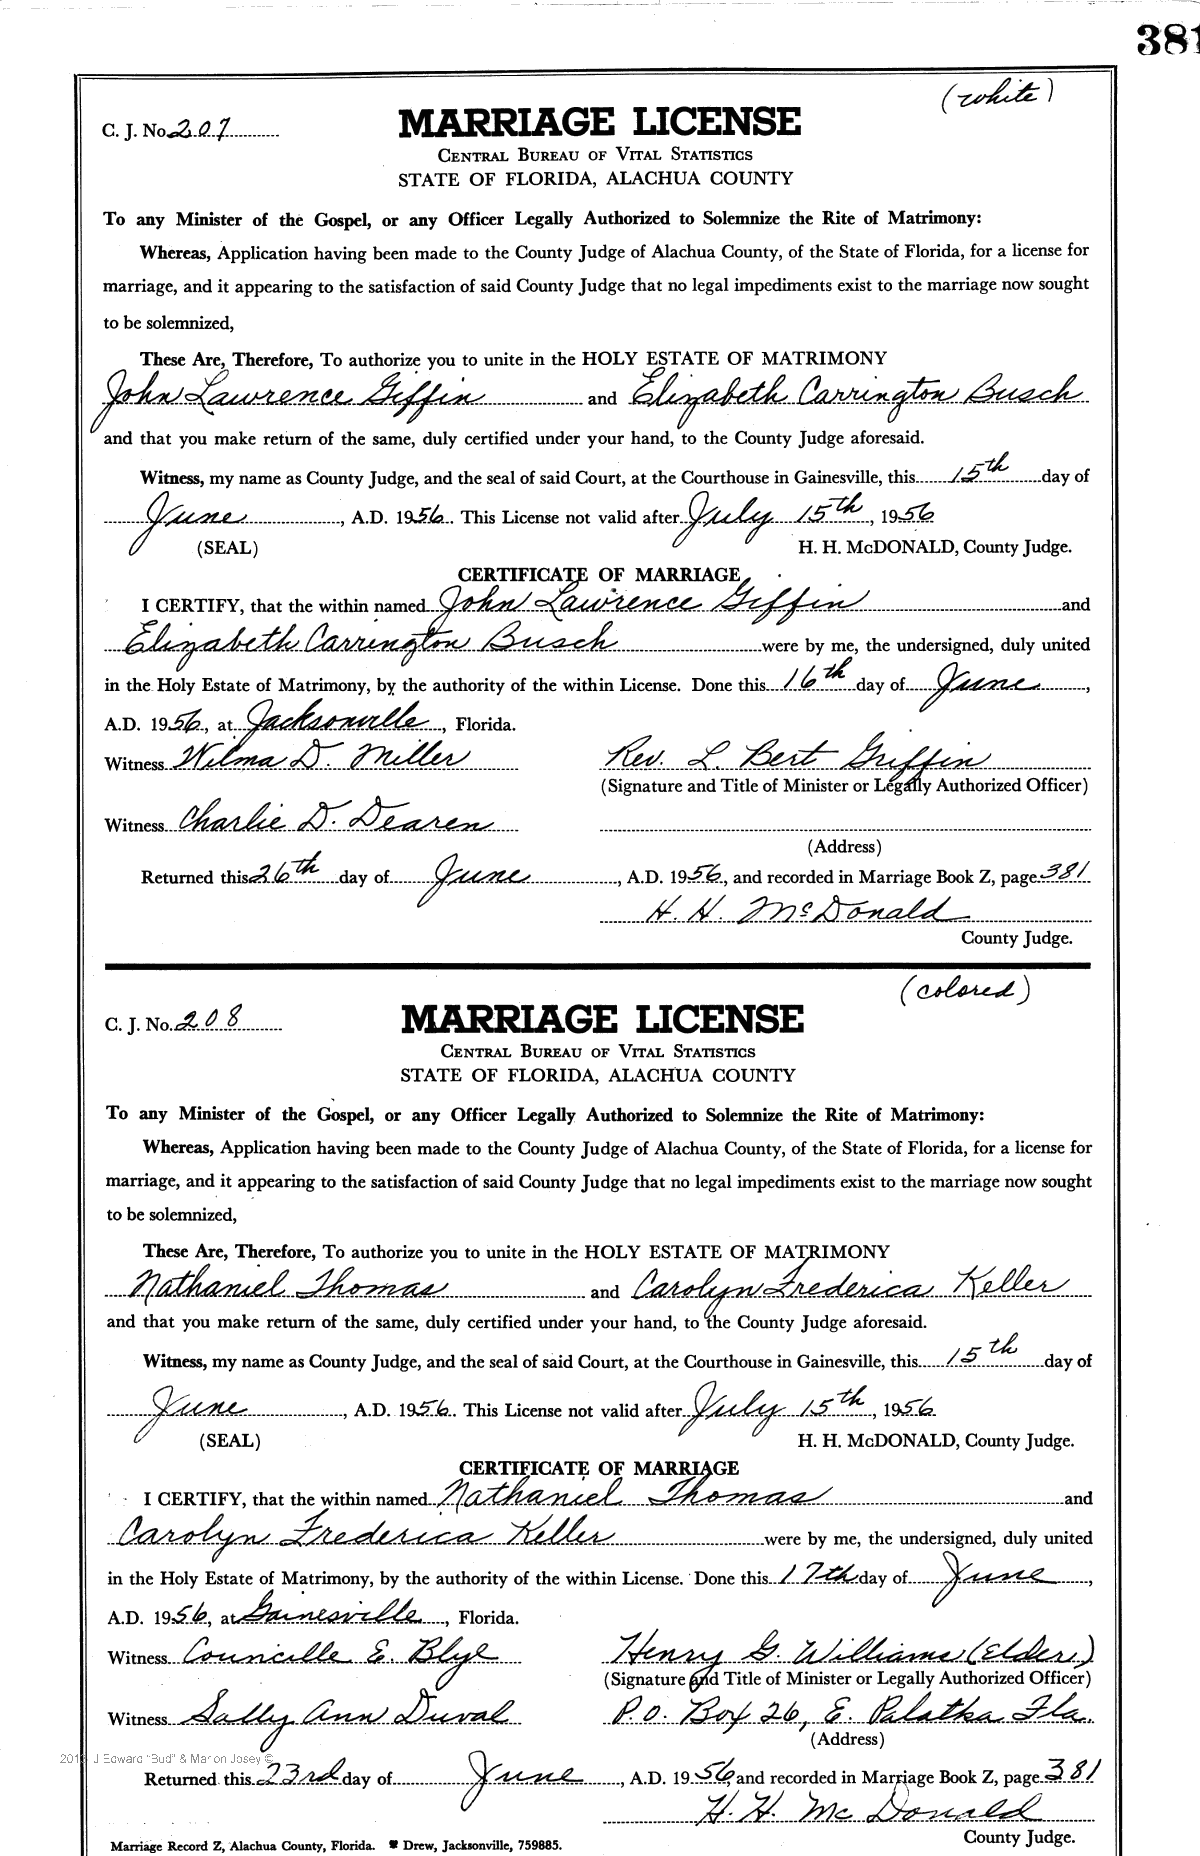 381
(white)
C. J. No. 207
MARRIAGE LICENSE
CENTRAL BUREAU OF VITAL STATISTICS
STATE OF FLORIDA, ALACHUA COUNTY
To any Minister of the Gospel, or any Officer Legally Authorized to Solemnize the Rite of Matrimony:
Whereas, Application having been made to the County Judge of Alachua County, of the State of Florida, for a license for
marriage, and it appearing to the satisfaction of said County Judge that no legal impediments exist to the marriage now sought
to be solemnized,
These Are, Therefore, To authorize you to unite in the HOLY ESTATE OF MATRIMONY
John Lawrence Giffin and Elizabeth Carrington Busch
and that you make return of the same, duly certified under your hand, to the County Judge aforesaid.
Witness, my name as County Judge, and the seal of said Court, at the Courthouse in Gainesville, this 15th day of
June, A.D. 1956. This License not valid after July 15th, 1956
(SEAL) H. H. McDONALD, County Judge.
CERTIFICATE OF MARRIAGE
I CERTIFY, that the within named John Lawrence Giffin and
Elizabeth Carrington Busch were by me, the undersigned, duly united
in the Holy Estate of Matrimony, by the authority of the within License. Done this 16th day of June,
A.D. 1956, at Jacksonville, Florida.
Witness Wilma D. Miller Rev. L. Bert Griffin
(Signature and Title of Minister or Legally Authorized Officer)
Witness Charlie D. Dearen
(Address)
Returned this 26th day of June, A.D. 1956, and recorded in Marriage Book Z, page 381
H. H. McDonald
County Judge.
(colored)
C. J. No. 208
MARRIAGE LICENSE
CENTRAL BUREAU OF VITAL STATISTICS
STATE OF FLORIDA, ALACHUA COUNTY
To any Minister of the Gospel, or any Officer Legally Authorized to Solemnize the Rite of Matrimony:
Whereas, Application having been made to the County Judge of Alachua County, of the State of Florida, for a license for
marriage, and it appearing to the satisfaction of said County Judge that no legal impediments exist to the marriage now sought
to be solemnized,
These Are, Therefore, To authorize you to unite in the HOLY ESTATE OF MATRIMONY
Nathaniel Thomas and Carolyn Frederica Keller
and that you make return of the same, duly certified under your hand, to the County Judge aforesaid.
Witness, my name as County Judge, and the seal of said Court, at the Courthouse in Gainesville, this 15th day of
June, A.D. 1956. This License not valid after July 15th, 1956
(SEAL) H. H. McDONALD, County Judge.
CERTIFICATE OF MARRIAGE
I CERTIFY, that the within named Nathaniel Thomas and
Carolyn Frederica Keller were by me, the undersigned, duly united
in the Holy Estate of Matrimony, by the authority of the within License. Done this 17th day of June,
A.D. 1956, at Gainesville, Florida.
Witness Councille E. Blye Henry G. Williams (Elder)
(Signature and Title of Minister or Legally Authorized Officer)
Witness Sally Ann Duval P.O. Box 26, E. Palatka Fla.
(Address)
J Edward "Bud" & Marion Josey ©
Returned this 23rd day of June, A.D. 1956 and recorded in Marriage Book Z, page 381
H. H. McDonald
County Judge.
Marriage Record Z, Alachua County, Florida. Drew, Jacksonville, 759885.